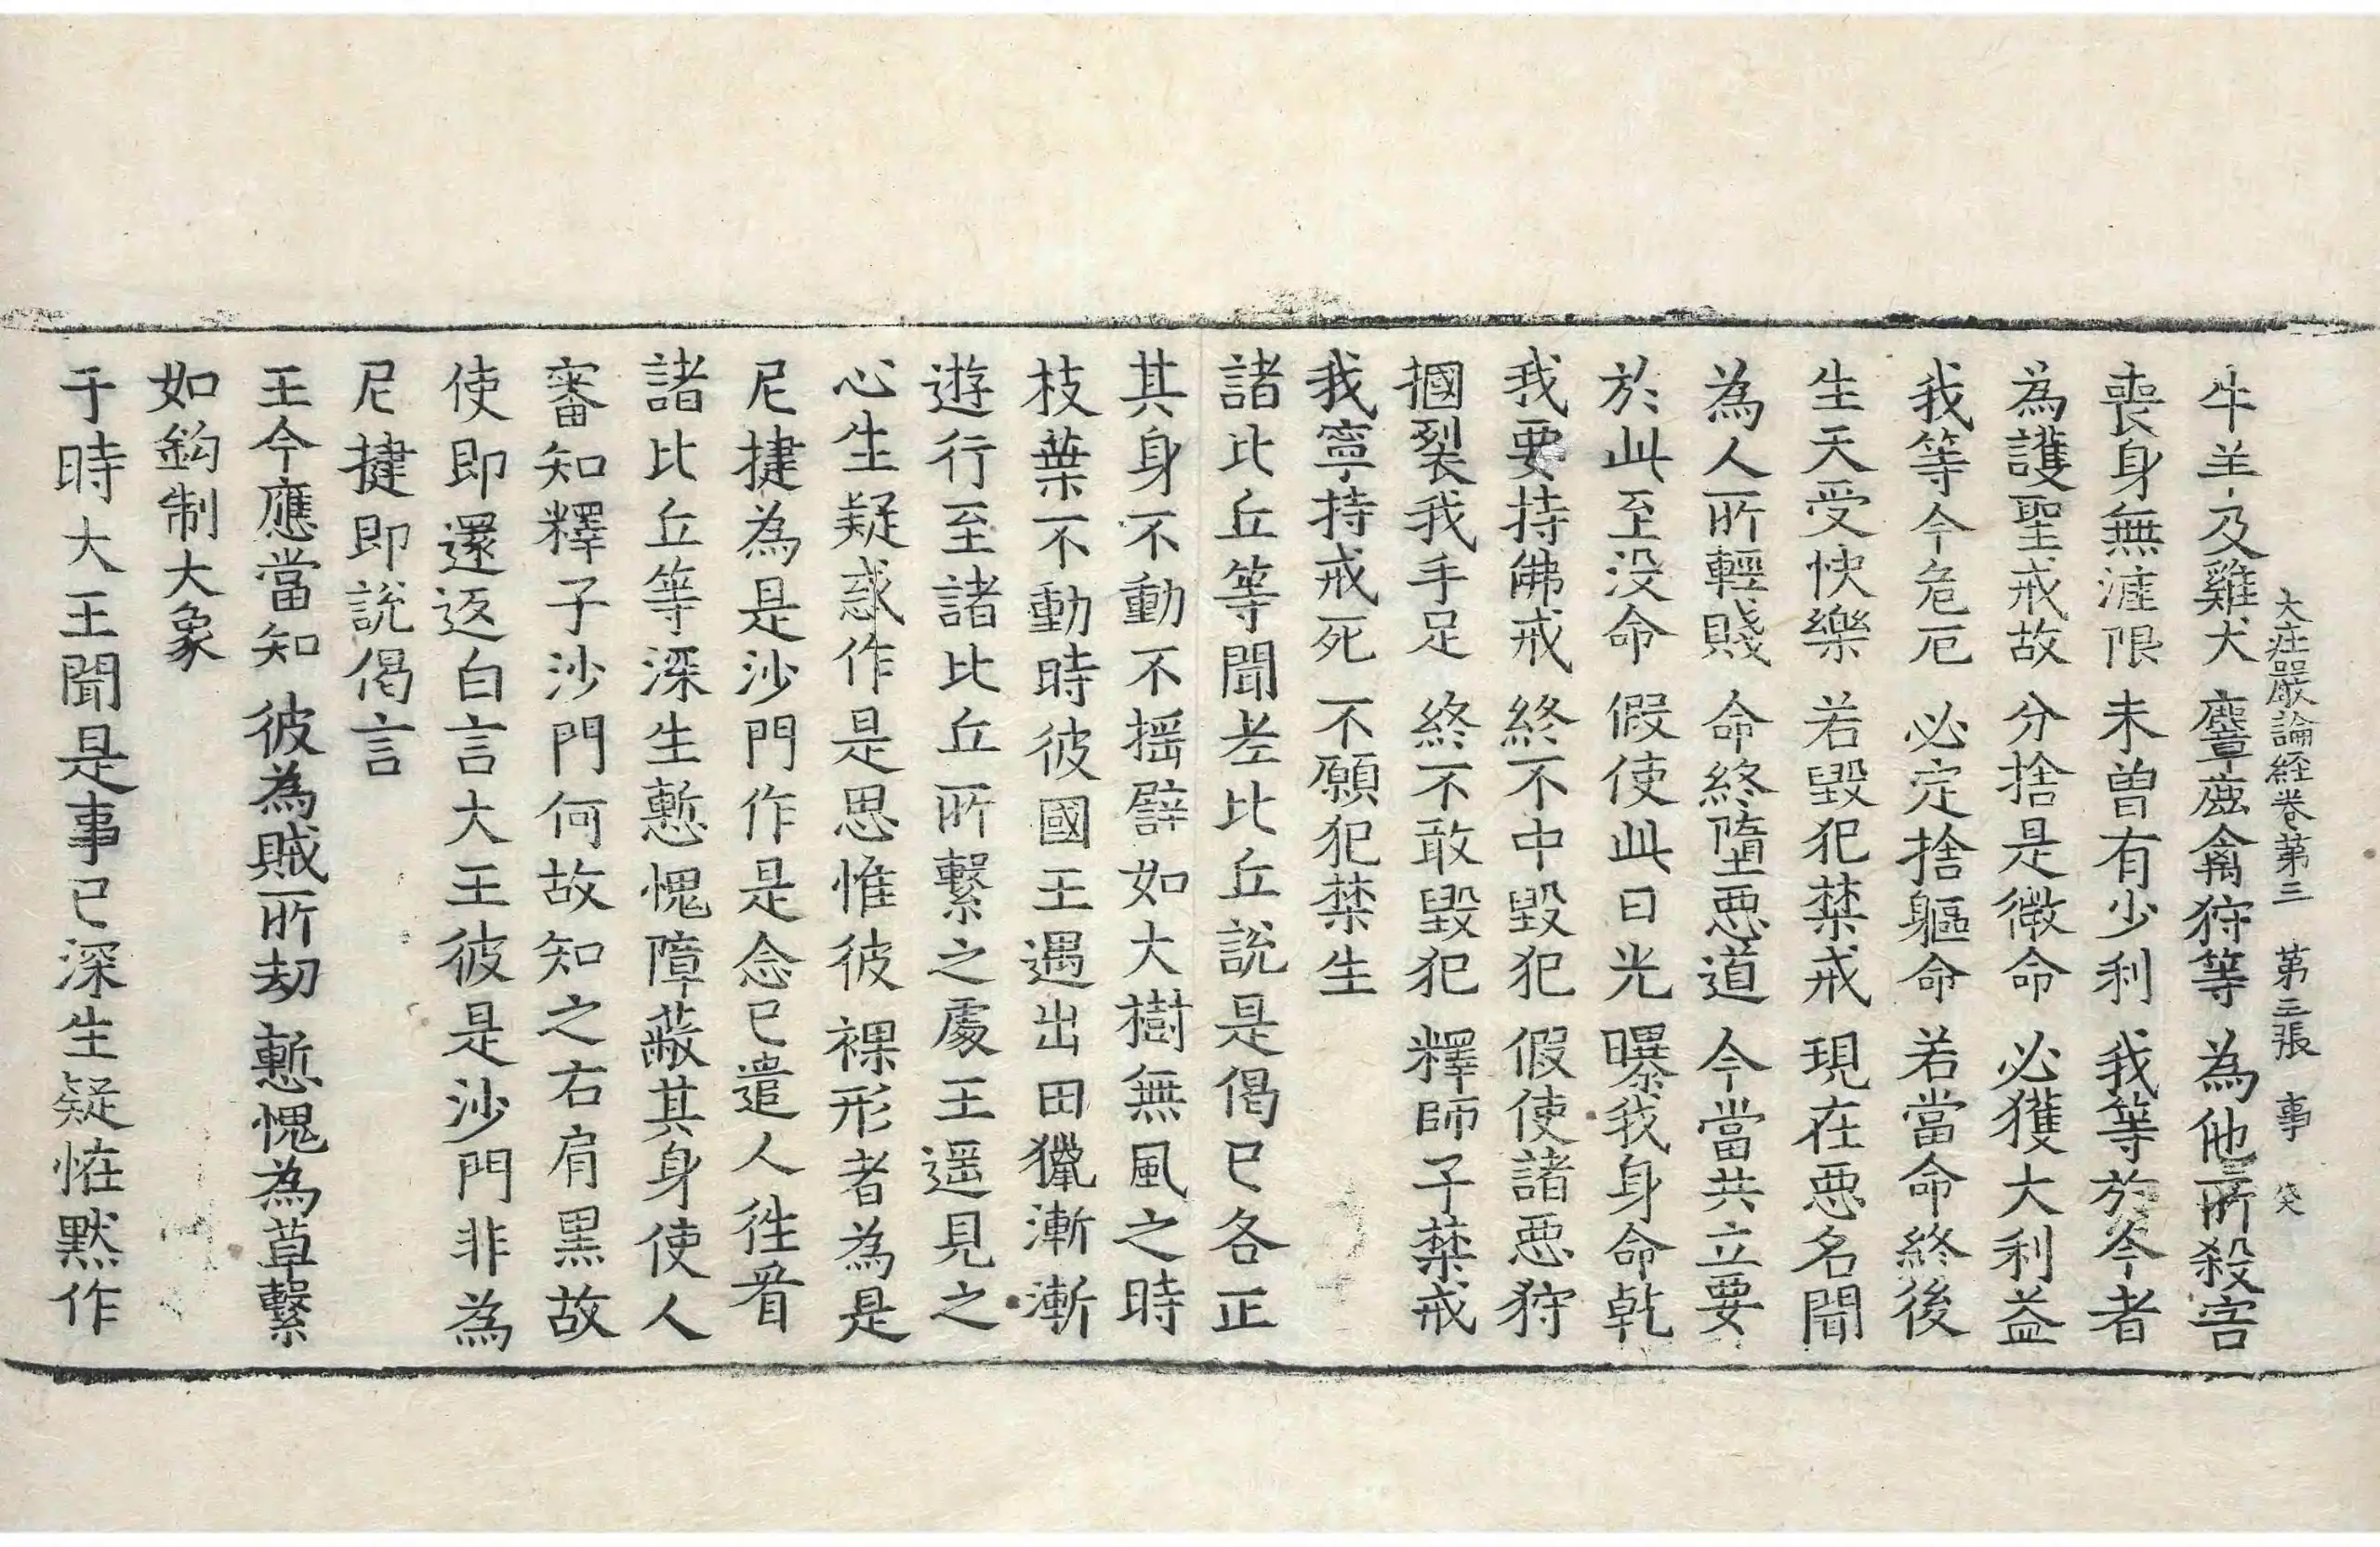 大庄嚴論経卷第三　第三張　事
牛羊及雞犬　麞鹿禽狩等　為他所殺害
喪身無漄限　未曽有少利　我等於今者
為護聖戒故　分捨是微命　必獲大利益
我等今危厄　必定捨軀命　若當命終後
生天受快樂　若毀犯禁戒　現在惡名聞
為人所輕賤　命終墮惡道　今當共立要
於此至没命　假使此日光　曝我身命乹
我要持佛戒　終不中毀犯　假使諸惡狩
摑裂我手足　終不敢毀犯　釋師子禁戒
我寧持戒死　不願犯禁生
諸比丘等聞老比丘說是偈已各正
其身不動不揺譬如大樹無風之時
枝葉不動時彼國王遇出田獵漸漸
遊行至諸比丘所繫之處王遥見之
心生疑惑作是思惟彼裸形者為是
尼揵為是沙門作是念已遣人徃看
諸比丘等深生慙愧障蔽其身使人
審知釋子沙門何故知之右肩黒故
使即還返白言大王彼是沙門非為
尼揵即說偈言
王今應當知　彼為賊所劫　慙愧為草繫
如鈎制大象
于時大王聞是事已深生疑恠默作